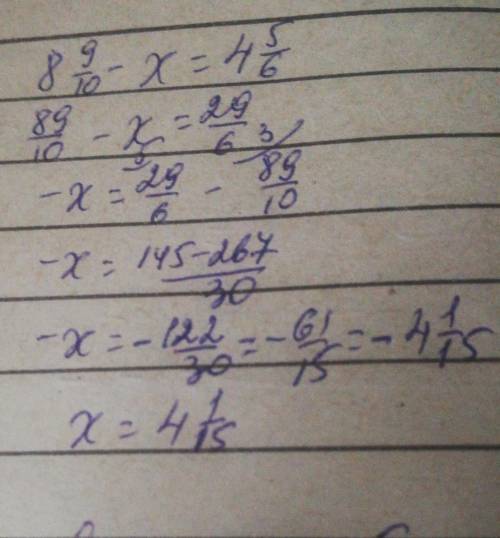 8 9/10 - x = 4 5/6
89/10 - x = 29/6
-x = 5/ 29/6 - 3/ 89/10
-x = 145-267/30
-x = -122/30 = -61/15 = -4 1/15
x = 4 1/15